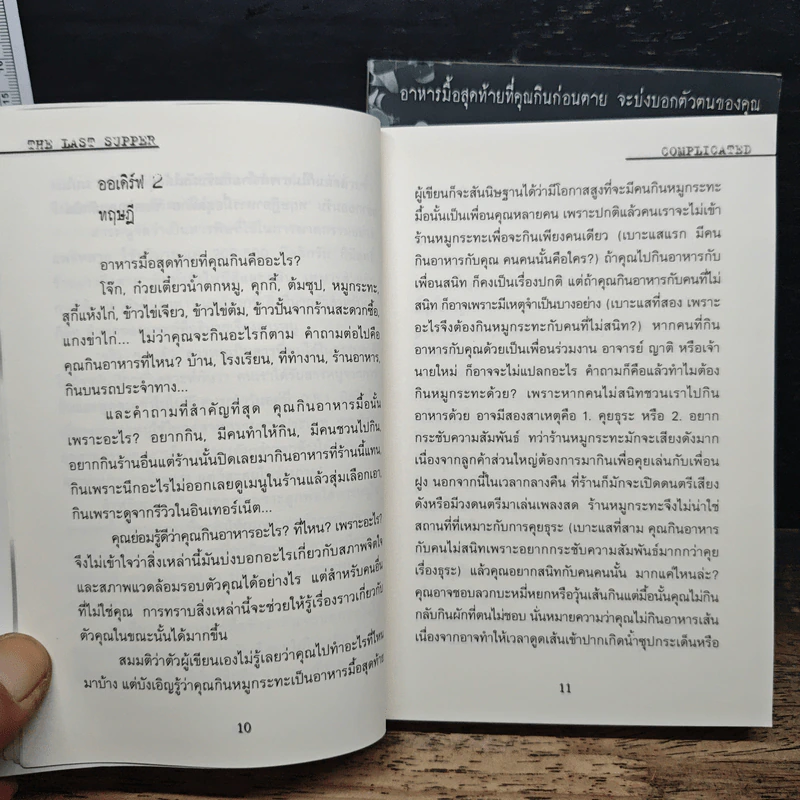 อาหารมื้อสุดท้ายที่คุณกินก่อนตาย จะบ่งบอกตัวตนของคุณ
THE LAST SUPPER
ออเดิร์ฟ 2
ทฤษฎี
อาหารมื้อสุดท้ายที่คุณกินคืออะไร?
โจ๊ก, ก๋วยเตี๋ยวน้ำตกหมู, คุกกี้, ต้มซุป, หมูกระทะ,
สุกี้แห้งไก่, ข้าวไข่เจียว, ข้าวไข่ต้ม, ข้าวปั้นจากร้านสะดวกซื้อ,
แกงข่าไก่... ไม่ว่าคุณจะกินอะไรก็ตาม คำถามต่อไปคือ
คุณกินอาหารที่ไหน? บ้าน, โรงเรียน, ที่ทำงาน, ร้านอาหาร,
กินบนรถประจำทาง...
และคำถามที่สำคัญที่สุด คุณกินอาหารมื้อนั้น
เพราะอะไร? อยากกิน, มีคนทำให้กิน, มีคนชวนไปกิน,
อยากกินร้านอื่นแต่ร้านนั้นปิดเลยมากินอาหารที่ร้านนี้แทน,
กินเพราะนึกอะไรไม่ออกเลยดูเมนูในร้านแล้วสุ่มเลือกเอา,
กินเพราะดูจากรีวิวในอินเทอร์เน็ต...
คุณย่อมรู้ดีว่าคุณกินอาหารอะไร? ที่ไหน? เพราะอะไร?
จึงไม่เข้าใจว่าสิ่งเหล่านี้มันบ่งบอกอะไรเกี่ยวกับสภาพจิตใจ
และสภาพแวดล้อมรอบตัวคุณได้อย่างไร แต่สำหรับคนอื่น
ที่ไม่ใช่คุณ การทราบสิ่งเหล่านี้จะช่วยให้รู้เรื่องราวเกี่ยวกับ
ตัวคุณในขณะนั้นได้มากขึ้น
สมมติว่าตัวผู้เขียนเองไม่รู้เลยว่าคุณไปทำอะไรที่ไหน
มาบ้าง แต่บังเอิญรู้ว่าคุณกินหมูกระทะเป็นอาหารมื้อสุดท้าย
10
COMPLICATED
ผู้เขียนก็จะสันนิษฐานได้ว่ามีโอกาสสูงที่จะมีคนกินหมูกระทะ
มื้อนั้นเป็นเพื่อนคุณหลายคน เพราะปกติแล้วคนเราจะไม่เข้า
ร้านหมูกระทะเพื่อจะกินเพียงคนเดียว (เบาะแสแรก มีคน
กินอาหารกับคุณ คนคนนั้นคือใคร?) ถ้าคุณไปกินอาหารกับ
เพื่อนสนิท ก็คงเป็นเรื่องปกติ แต่ถ้าคุณกินอาหารกับคนที่ไม่
สนิท ก็อาจเพราะมีเหตุจำเป็นบางอย่าง (เบาะแสที่สอง เพราะ
อะไรจึงต้องกินหมูกระทะกับคนที่ไม่สนิท?) หากคนที่กิน
อาหารกับคุณด้วยเป็นเพื่อนร่วมงาน อาจารย์ ญาติ หรือเจ้า
นายใหม่ ก็อาจจะไม่แปลกอะไร คำถามก็คือแล้วทำไมต้อง
กินหมูกระทะด้วย? เพราะหากคนไม่สนิทชวนเราไปกิน
อาหารด้วย อาจมีสองสาเหตุคือ 1. คุยธุระ หรือ 2. อยาก
กระชับความสัมพันธ์ ทว่าร้านหมูกระทะมักจะเสียงดังมาก
เนื่องจากลูกค้าส่วนใหญ่ต้องการมากินเพื่อคุยเล่นกับเพื่อน
ฝูง นอกจากนี้ในเวลากลางคืน ที่ร้านก็มักจะเปิดดนตรีเสียง
ดังหรือมีวงดนตรีมาเล่นเพลงสด ร้านหมูกระทะจึงไม่น่าใช่
สถานที่ที่เหมาะกับการคุยธุระ (เบาะแสที่สาม คุณกินอาหาร
กับคนไม่สนิทเพราะอยากกระชับความสัมพันธ์มากกว่าคุย
เรื่องธุระ) แล้วคุณอยากสนิทกับคนคนนั้น มากแค่ไหนล่ะ?
คุณอาจชอบลวกบะหมี่หยกหรือวุ้นเส้นกินแต่มื้อนั้นคุณไม่กิน
กลับกินผักที่ตนไม่ชอบ นั่นหมายความว่าคุณไม่กินอาหารเส้น
เนื่องจากอาจทำให้เวลาดูดเส้นเข้าปากเกิดน้ำซุปกระเด็นหรือ
11